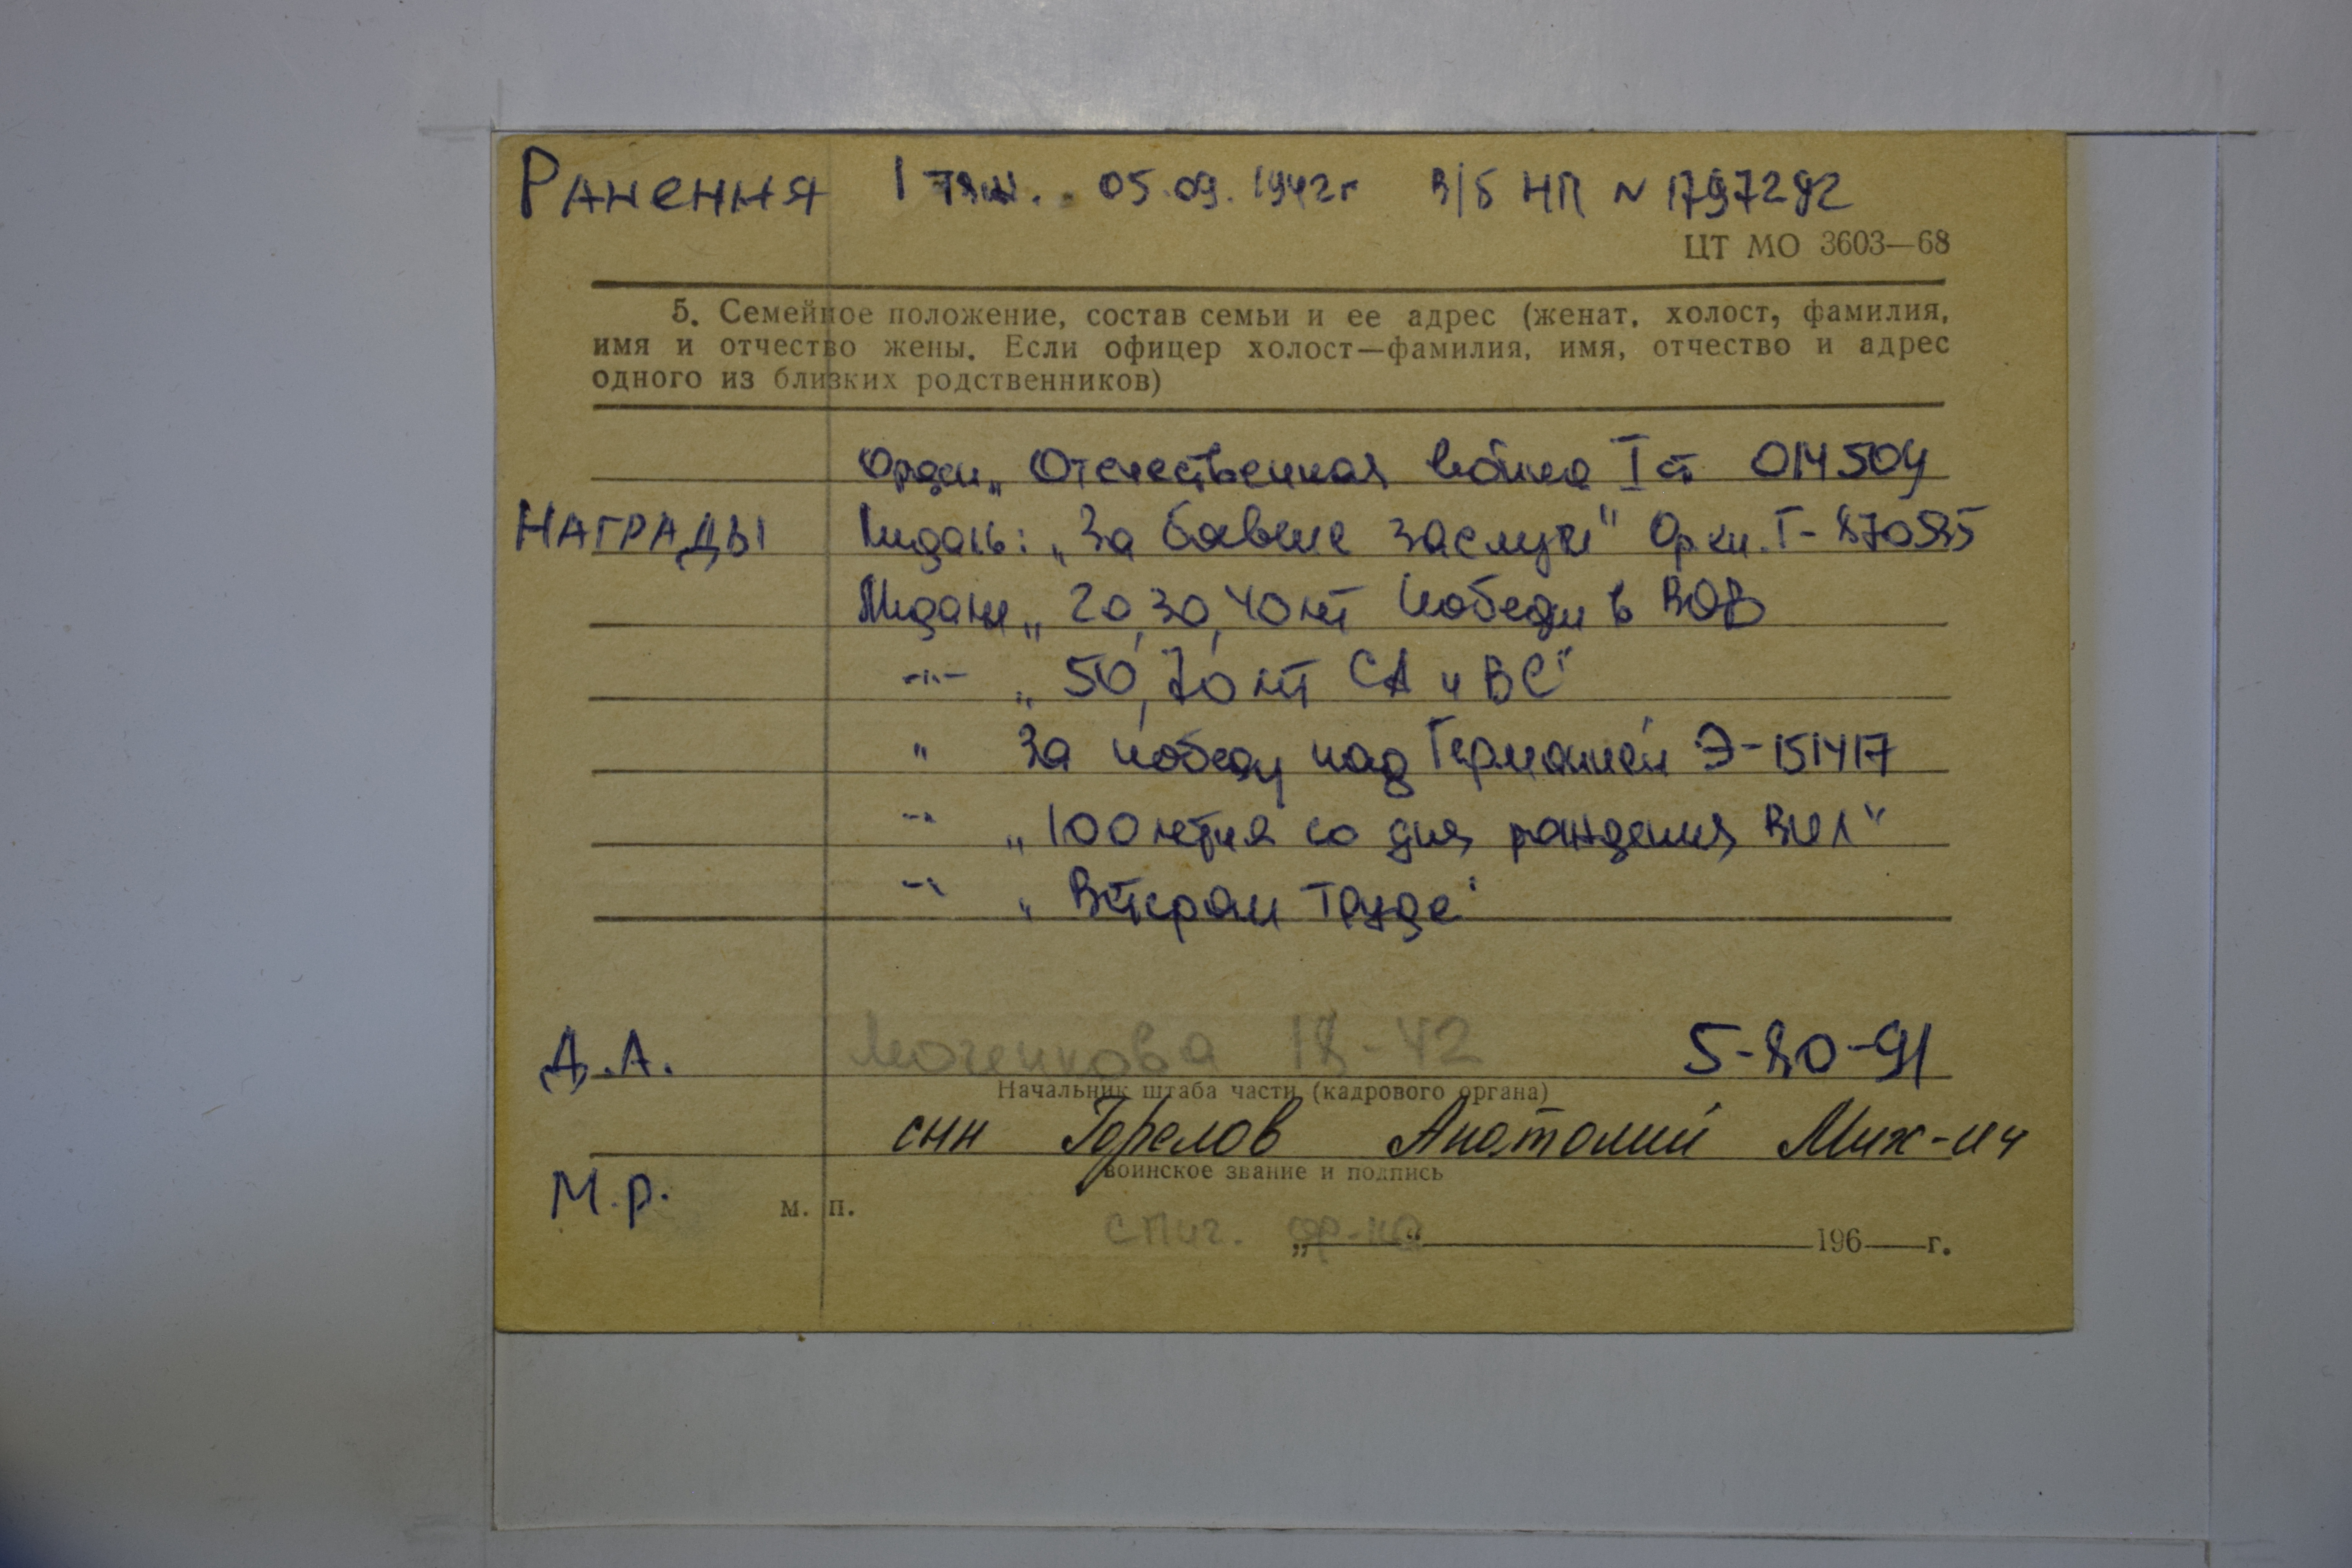 Ранення 1 тяж. 05.09.1942г в/б НП № 1797292
ЦТ МО 3603—68
5. Семейное положение, состав семьи и ее адрес (женат, холост, фамилия,
имя и отчество жены. Если офицер холост—фамилия, имя, отчество и адрес
одного из близких родственников)
Орден „Отечественная война I ст 014504
НАГРАДЫ Медаль: „За боевые заслуги" Ор кн. Г-870585
Медали „20, 30, 40 лет Победы в ВОВ
-"- „50, 70 лет СА и ВС"
" За победу над Германией Э-151417
-"- „100 летия со дня рождения ВИЛ"
-"- „Ветеран Труда"
Д.А. 18-42 5-80-91
Начальник штаба части (кадрового органа)
сын Горелов Анатолий Мих-ич
воинское звание и подпись
М.р. м. п.
„ “ 196 г.